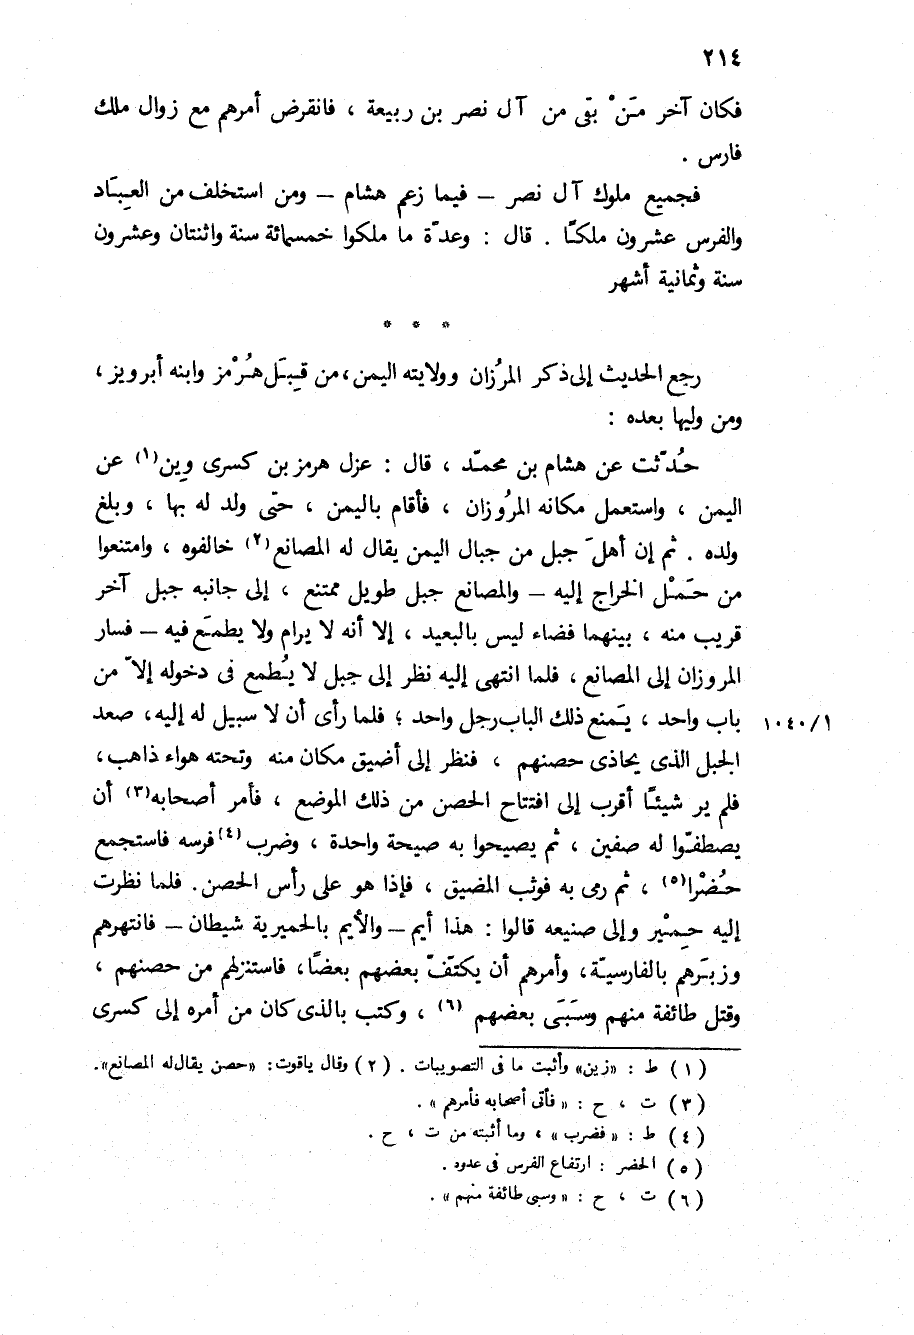 ٢١٤
فكان آخر مَنْ بقى من آل نصر بن ربيعة ، فانقرض أمرهم مع زوال ملك
فارس .
فجميع ملوك آل نصر – فيما زعم هشام – ومن استخلف من العِبَاد
والفرس عشرون ملكًا . قال : وعدّة ما ملكوا خمسمائة سنة واثنتان وعشرون
سنة وثمانية أشهر
* * *
رجع الحديث إلى ذكر المرُزان وولايته اليمن ، من قِبَل هُرْمز وابنه أبرويز ،
ومن وليها بعده :
حُدّثت عن هشام بن محمّد ، قال : عزل هرمز بن كسرى وين(١) عن
اليمن ، واستعمل مكانه المرُوزان ، فأقام باليمن ، حتّى ولد له بها ، وبلغ
ولده . ثم إن أهلَ جبل من جبال اليمن يقال له المصانع(٢) خالفوه ، وامتنعوا
من حَمْل الخراج إليه – والمصانع جبل طويل ممتنع ، إلى جانبه جبل آخر
قريب منه ، بينهما فضاء ليس بالبعيد ، إلا أنه لا يرام ولا يطمَع فيه – فسار
المروزان إلى المصانع ، فلما انتهى إليه نظر إلى جبل لا يُطمع فى دخوله إلاّ من
باب واحد ، يَمنع ذلك الباب رجل واحد ؛ فلما رأى أن لا سبيل له إليه، صعد ١٠٤٠/١
الجبل الذى يحاذى حصنهم ، فنظر إلى أضيق مكان منه وتحته هواء ذاهب ،
فلم ير شيئًا أقرب إلى افتتاح الحصن من ذلك الموضع ، فأمر أصحابه(٣) أن
يصطفّوا له صفين ، ثم يصيحوا به صيحة واحدة ، وضرب(٤) فرسه فاستجمع
حُضْرا(٥) ، ثم رمى به فوثب المضيق ، فإذا هو على رأس الحصن . فلما نظرت
إليه حِمْير وإلى صنيعه قالوا : هذا أيم – والأيم بالحميرية شيطان – فانتهرهم
وزبَرهم بالفارسيّة، وأمرهم أن يكتّف بعضهم بعضًا، فاستنزلهم من حصنهم ،
وقتل طائفة منهم وسَبَى بعضهم (٦) ، وكتب بالذى كان من أمره إلى كسرى
(١) ط : «زين» وأثبت ما فى التصويبات . (٢) وقال ياقوت: «حصن يقال له المصانع».
(٣) ت ، ح : « فأتى أصحابه فأمرهم » .
(٤) ط : « فضرب » ، وما أثبته من ت ، ح .
(٥) الحضر : ارتفاع الفرس فى عدوه .
(٦) ت ، ح : « وسبى طائفة منهم » .